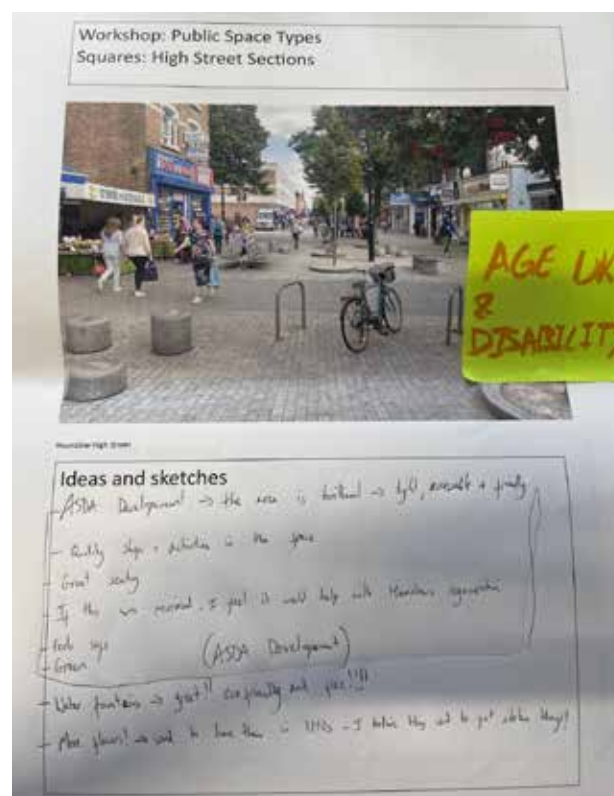 Workshop: Public Space Types
Squares: High Street Sections
AGE UK
&
DISABILITY
Hounslow High Street
Ideas and sketches
- ASDA Development → the area is brilliant → light, accessible + friendly
- Quality shops + activities in the space
- Great seating
- If this was, I feel it would help with Hounslow's regeneration
- Feels safe
- Green
(ASDA Development)
- Water fountains → great!! and free!!!!
- More flowers! → used to have them in - I believe they used to get